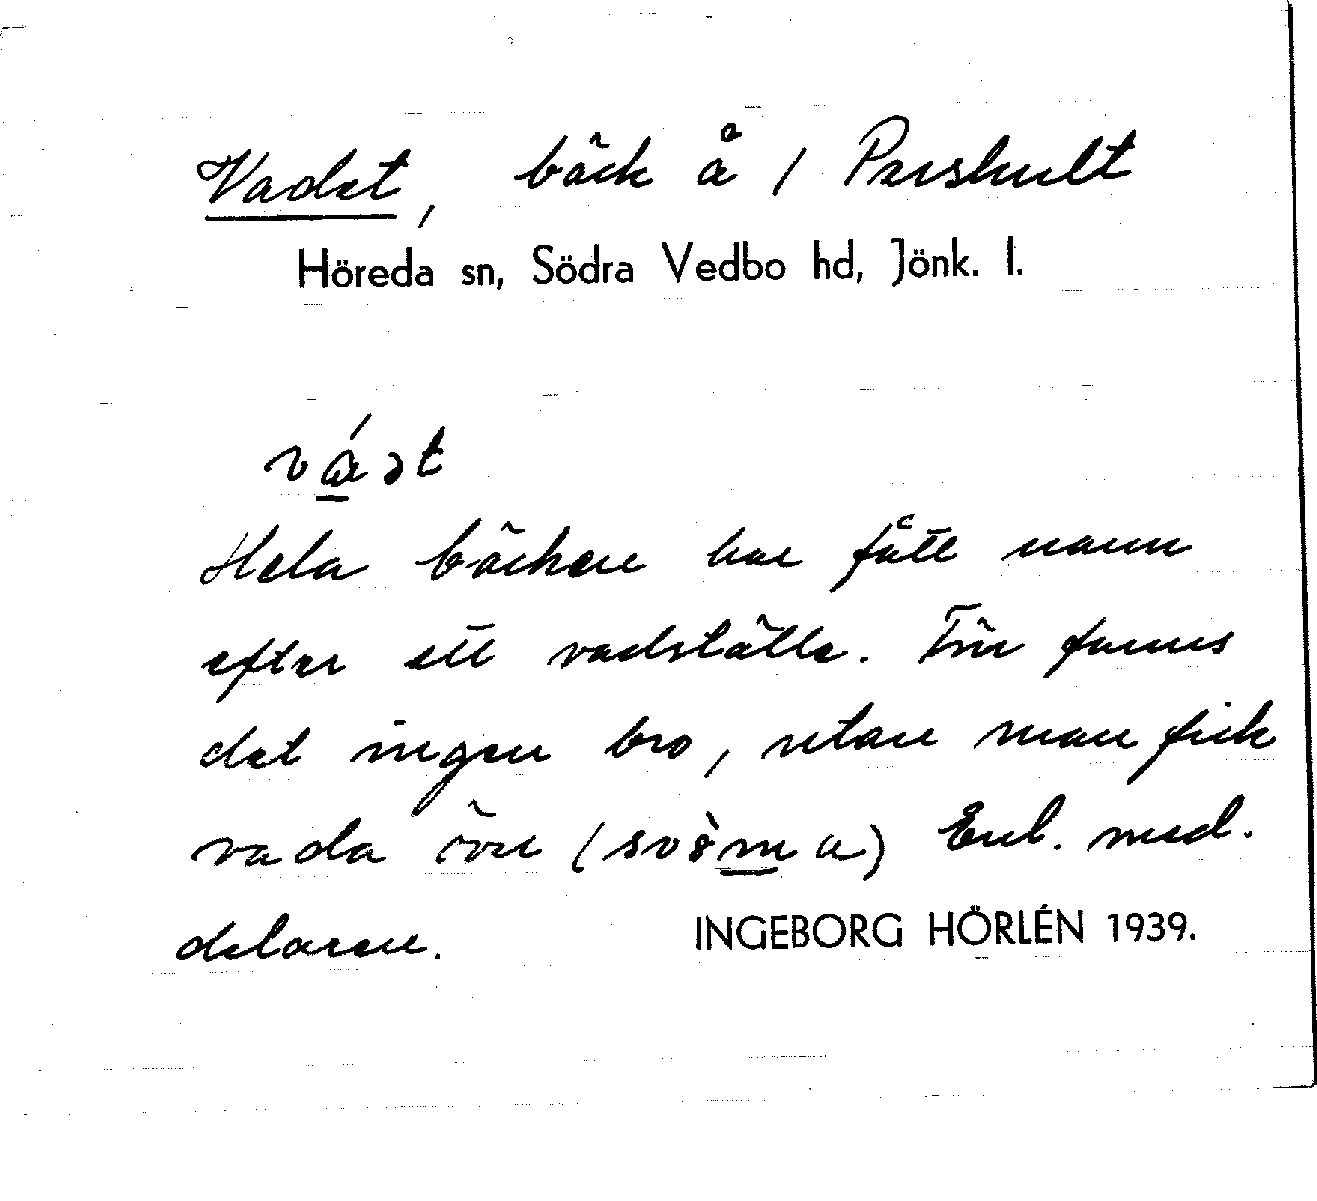 Vadet, bäck å / Pershult
Höreda sn, Södra Vedbo hd, Jönk. l.
vá̱ət
Hela bäcken har fått namn
efter ett vadställe. Förr fanns
det ingen bro, utan man fick
vada över (svòm̱a) Enl. med-
delaren. INGEBORG HÖRLÉN 1939.